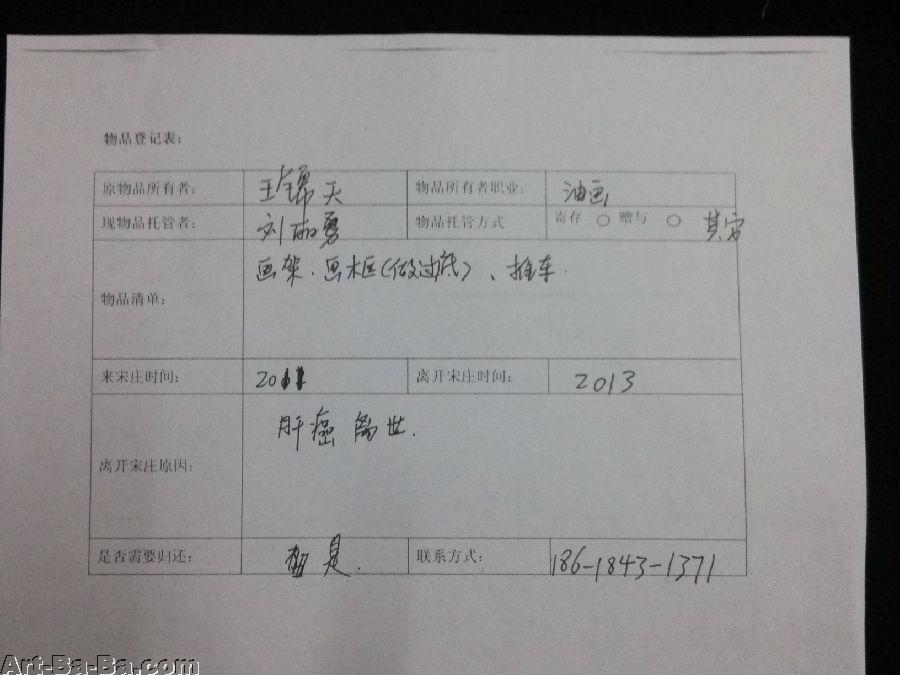 物品登记表：
原物品所有者： 王锦天 物品所有者职业： 油画
现物品托管者： 刘雨勇 物品托管方式 寄存 ○ 赠与 ○ 其它
物品清单： 画架、画框（做过底）、推车.
来宋庄时间： 2011 离开宋庄时间： 2013
离开宋庄原因： 肝癌 离世.
是否需要归还： 是. 联系方式： 186-1843-1371
Art-Ba-Ba.com